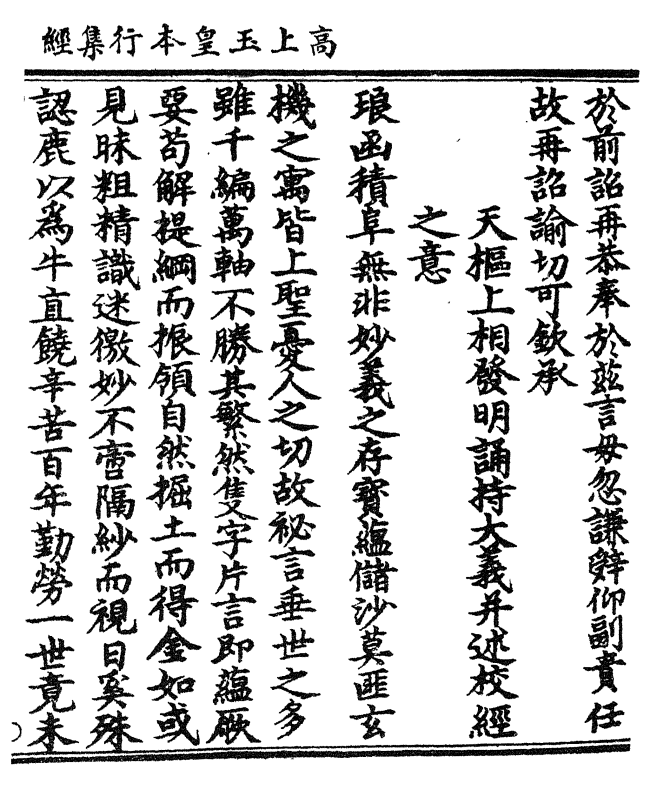 高上玉皇本行集經
於前詔再恭奉於茲言毋忽謙辭仰副責任
故再詔諭切可欽承
天樞上相發明誦持大義并述校經
之意
琅函積阜無非妙義之存寶蘊儲沙莫匪玄
機之寓皆上聖憂人之切故祕言垂世之多
雖千編萬軸不勝其繁然隻字片言即蘊厥
要苟解提綱而振領自然掘土而得金如或
見昧粗精識迷徼妙不啻隔紗而視日奚殊
認鹿以為牛直饒辛苦百年勤勞一世竟未